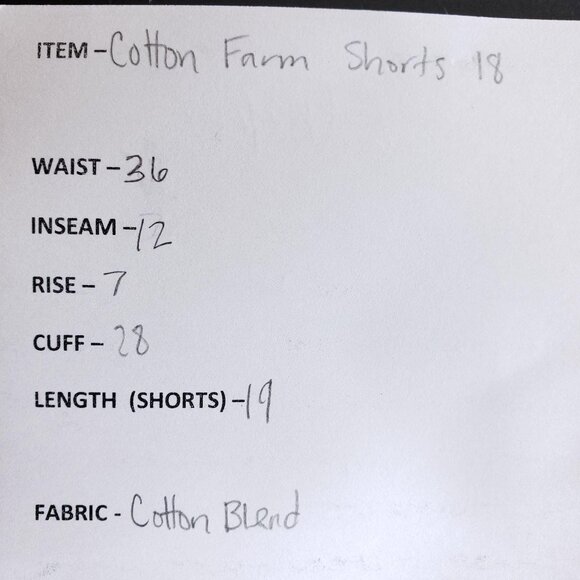 ITEM – Cotton Farm Shorts 18
WAIST – 36
INSEAM – 12
RISE – 7
CUFF – 28
LENGTH (SHORTS) – 19
FABRIC - Cotton Blend